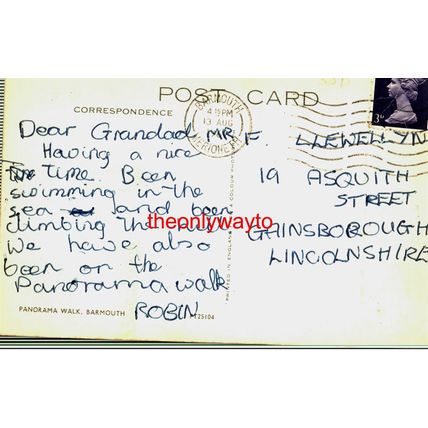 POST CARD
CORRESPONDENCE
BARMOUTH
4:15PM
13 AUG
3D
Dear Grandad
Having a nice
time. Been
swimming in the
sea and been
climbing the
We have also
been on the
Panorama walk
ROBIN
MR F. LLEWELLYN
19 ASQUITH
STREET
GAINSBOROUGH
LINCOLNSHIRE
theonlywayto
PRINTED IN ENGLAND
PANORAMA WALK, BARMOUTH
PT25104